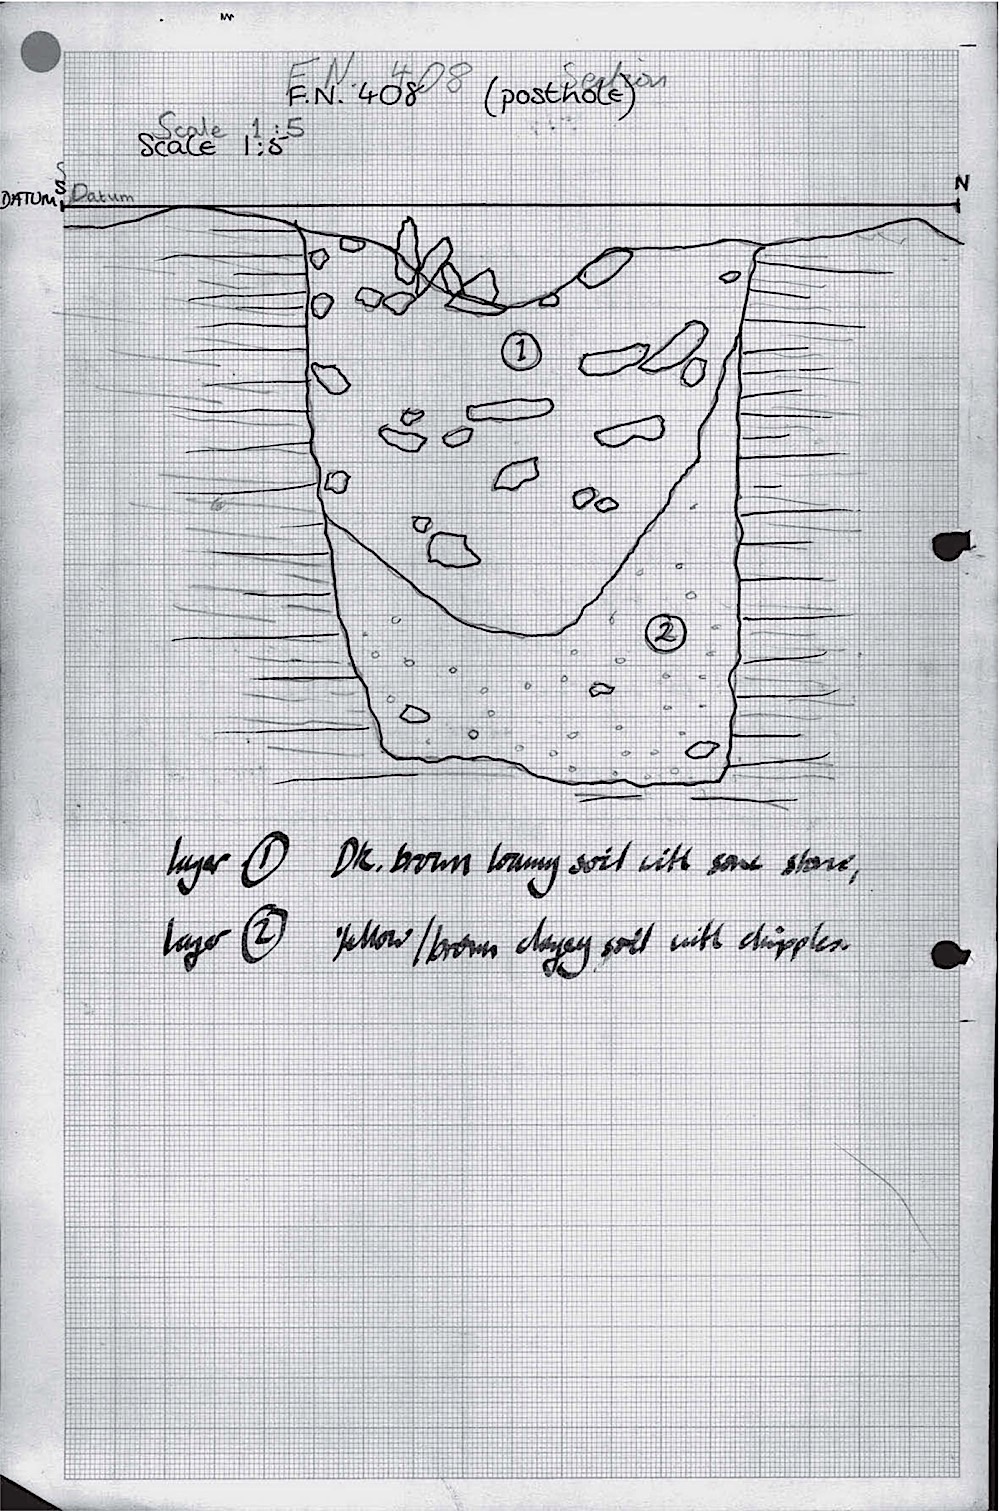 F.N. 408 Section
F.N. 408 (posthole)
Scale 1:5
Scale 1:5
S
S N
DATUM Datum
1
2
layer 1 Dk. brown loamy soil with some stone,
layer 2 Yellow/brown clayey soil with chipples.